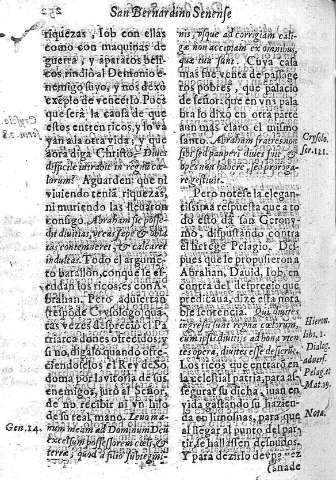 San Bernardino Senense
riquezas, Iob con ellas
como con maquinas de
guerra, y aparatos beli-
cos rindiò al Demonio e-
nemigo suyo, y nos dexò
exẽplo de vencerlo. Pues
que serà la causa de que
estos entẽ ricos, y lo va
yan a la otra vida, y que
aora diga Christo. Diues
difficile intrabit in regnũ cæ
lorum? Aguarden: que ni
viuiendo tenia riquezas,
ni muriendo las lleuaron
consigo. Abraham se posse-
dit diuitias, vt eas sæpe & obla
tas contemneret, & calcaret
indultas. Todo el argumẽ-
to batallon, con que le es-
cudan los ricos, es con A-
brahan. Pero aduiertan
respõde Crysologo quã-
tas vezes despreciò el Pa
triarca dones ofrecidos; y
si no, digalo quando ofre-
ciendoselos el Rey de So
doma por la vitoria de sus
enemigos, jurò al Señor,
de no recibir ni vn hilo
de su real mano. Leuo ma-
nom meam ad Dominum Deũ
excelsum possessorem cœli, &
terræ, quod a filo subtegmi-
Gen. 14.
nis, vsque ad corrigiam cali-
gæ non accipiam ex omnibus,
quæ tua sunt. Cuya casa
mas fue venta de passage
ros pobres, que palacio
de señor: que en vna pala
bra lo dixo en otra parte
aun mas claro el mismo
santo. Abraham fratres non
sibi sed pauperi diues fuit, &
opes non habere, sed eroga-
re gestiuit.
Crysolo.
ser. 121.
Pero notese la elegan-
tissima respuesta que a to
do esto dà san Gerony-
mo, disputando contra
el herege Pelagio. Des-
pues que le propusieron a
Abrahan, Dauid, Iob, en
contra del desprecio que
predicaua, dize esta nota
ble sentencia. Qui diuites
ingressi sunt regna cœlorum,
cum ipsi diuitijs ad bona vten
tes opera, diuites esse desierint.
Los ricos que entrarõ en
la celestial patria, para as-
segurar su dicha, iuan en
vida gastando su hazien-
da en limosnas, para que
al llegar al punto del par-
tir se hallassen desnudos.
Y para dezirlo de vna vez
Hieron.
lib. 1.
Dialog.
aduers.
Pelag. et
Mat. 19.
Note.